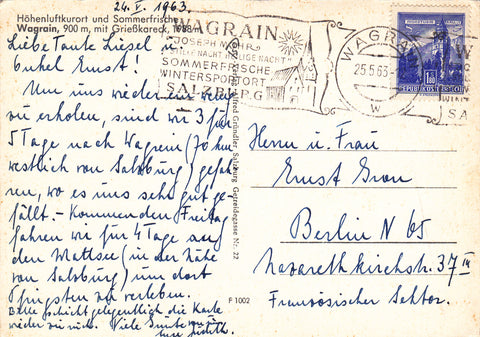 24. V. 1963.
Höhenluftkurort und Sommerfrische
Wagrain, 900 m, mit Grießkareck, 1988 m
Liebe Tante Liesel u.
Onkel Ernst!
Um uns wieder ein wenig
zu erholen, sind wir 3 für
5 Tage nach Wagrein (70 km
westlich von Salzburg) gefah-
ren, wo es uns sehr gut ge-
fällt. - Kommenden Freitag
fahren wir für 4 Tage auf
den Mattsee (in der Nähe
von Salzburg) um dort
Pfingsten zu verleben.
Bitte schickt gelegentlich die Karte
wieder zurück. Viele Grüße
Eure Judith.
Alfred Gründler, Salzburg Getreidegasse Nr. 22
F 1002
WAGRAIN
JOSEPH MOHR
"STILLE NACHT HEILIGE NACHT"
SOMMERFRISCHE
WINTERSPORTORT
SALZBURG
WAGRAIN
25.5.63
w
1.80
REPUBLIK ÖSTERREICH
W
SA
Herrn u. Frau
Ernst Gron
Berlin N 65
Nazarethkirchstr. 37 IV
Französischer Sektor.